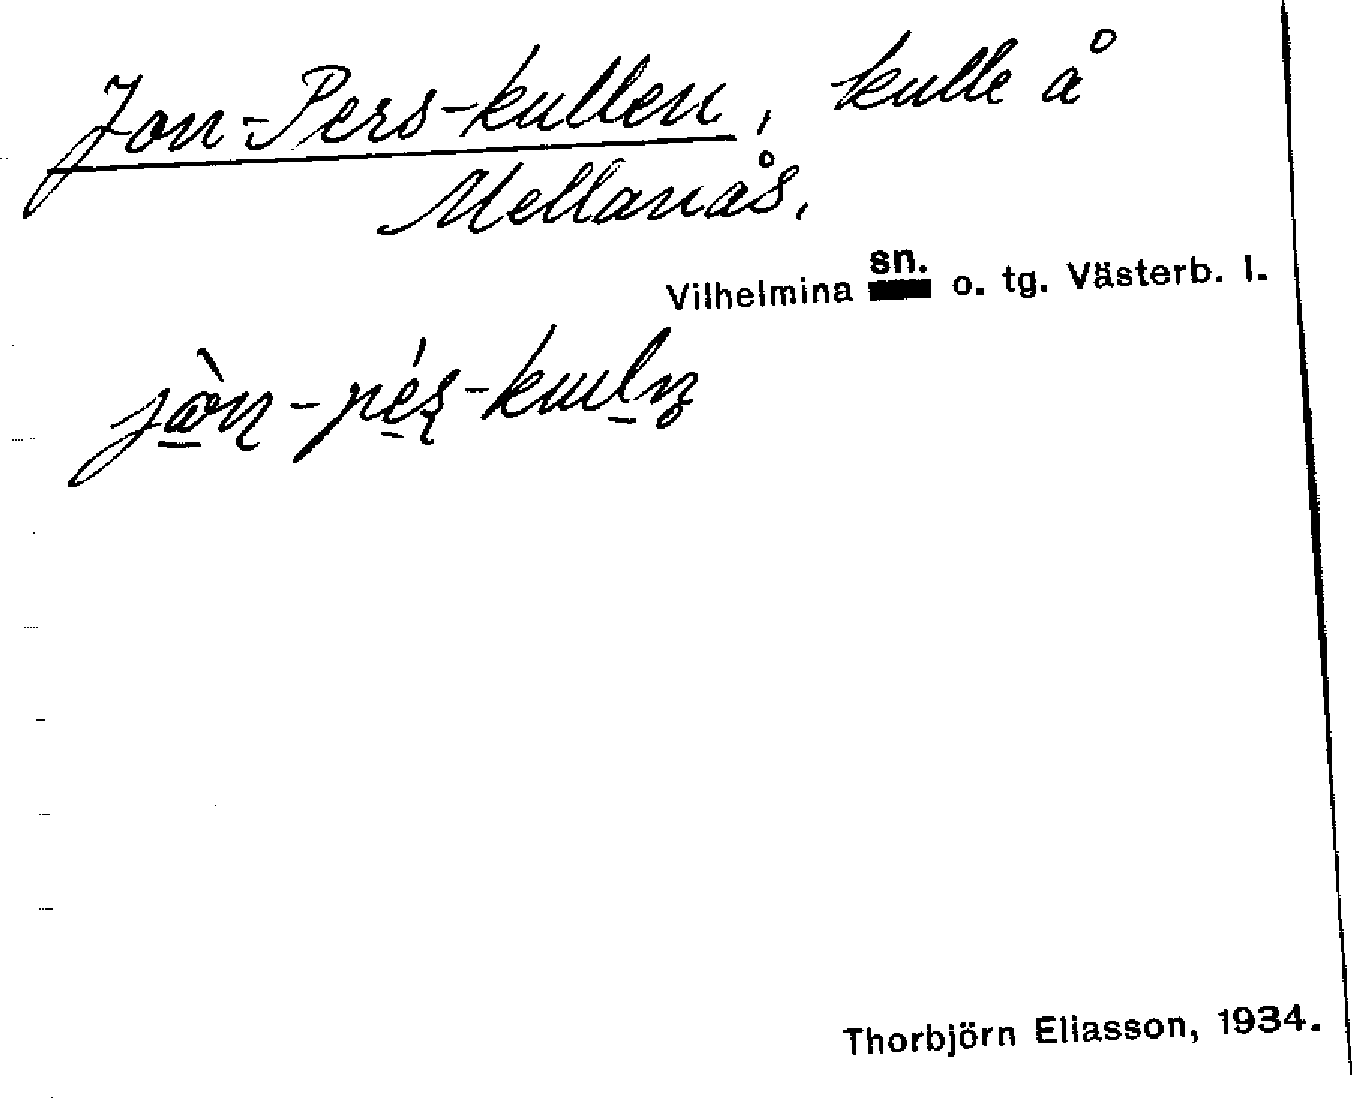 Jon-Pers-kullen, kulle å
Mellanås.
Vilhelmina sn. o. tg. Västerb. l.
Thorbjörn Eliasson, 1934.